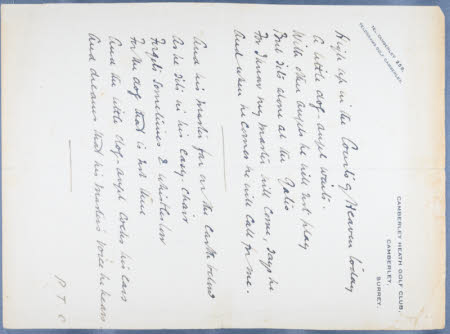 TEL. CAMBERLEY
TELEGRAMS: GOLF, CAMBERLEY
CAMBERLEY HEATH GOLF CLUB,
CAMBERLEY,
SURREY.
High up in the Courts of Heaven today
A little dog-angel waits.
With other angels he will not play
But sits alone at the Gates
For I know my Master will come, says he
And when he comes he will call for me.
And his master far on the earth below
As he sits in his easy-chair
Forgets sometimes & whistles low
For the dog that is not there
And the little dog-angel cocks his ears
And dreams that his Master's voice he hears.